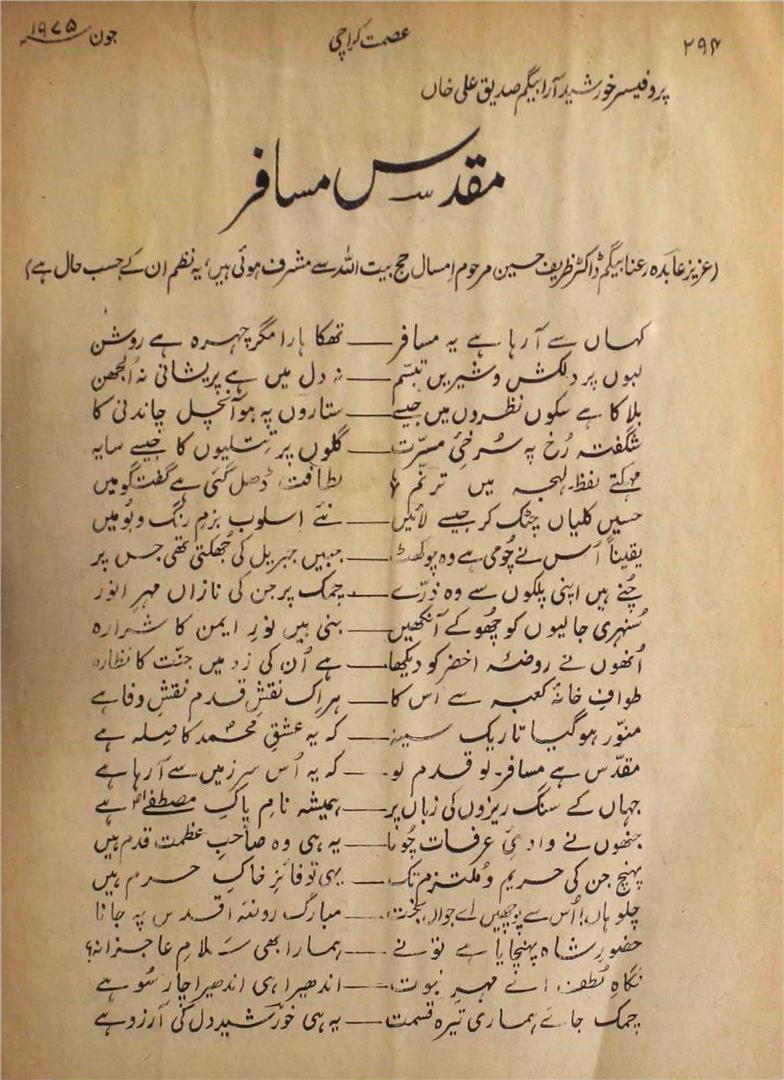 ۲۹۴ عصمت کراچی جون ۱۹۷۵
پروفیسر خورشید آرا بیگم صدیق علی خاں
مقدس مسافر
(عزیز عابدہ رعنا بیگم ڈاکٹر ظریف حسین مرحوم اِمسال حج بیت اللہ سے مشرف ہوئی ہیں، یہ نظم ان کے حسب حال ہے)
کہاں سے آ رہا ہے یہ مسافر — تھکا ہارا مگر چہرہ ہے روشن
لبوں پر دلکش و شیریں تبسّم — نہ دل میں ہے پریشانی نہ اُلجھن
بلا کا ہے سکوں نظروں میں جیسے — ستاروں پہ ہو آنچل چاندنی کا
شگفتہ رُخ پہ سُرخیٔ مسرّت — گلوں پر تتلیوں کا جیسے سایہ
مہکتے لفظ۔ لہجہ میں ترنّم — لطافت ڈھل گئی ہے گفتگو میں
حسیں کلیاں چٹک کر جیسے لائیں — نئے اسلوب بزمِ رنگ و بُو میں
یقیناً اُس نے چُومی ہے وہ چوکھٹ — جبیں جبریل کی جُھکتی تھی جس پر
چُنے ہیں اپنی پلکوں سے وہ ذرّے — چمک پر جن کی نازاں مہرِ انور
سُنہری جالیوں کو چُھو کے آنکھیں — بنی ہیں نورِ ایمن کا شرارہ
اُنھوں نے روضۂ اخضر کو دیکھا — ہے اُن کی زد میں جنّت کا نظارہ
طوافِ خانۂ کعبہ سے اس کا — ہر اِک نقشِ قدم نقشِ وفا ہے
منوّر ہو گیا تاریک سینہ — کہ یہ عشقِ محمدؐ کا صِلہ ہے
مقدّس ہے مسافر۔ لو قدم لو — کہ یہ اُس سرزمیں سے آ رہا ہے
جہاں کے سنگ ریزوں کی زباں پر — ہمیشہ نامِ پاکِ مصطفےٰؐ ہے
جنھوں نے وادیٔ عرفات چُوما — یہ ہی وہ صاحبِ عظمت قدم ہیں
پہنچ جن کی حریم و مُلتزم تک — یہی تو فائزِ خاکِ حرم ہیں
چلو ہاں! اُس سے پوچھیں اے جواں بخت — مبارک روضۂ اقدس پہ جانا
حضورِ شاہ پہنچایا ہے تو نے — ہمارا بھی سَلامِ عاجزانہ؟
نگاہِ لُطف اے مہرِ نبوت — اندھیرا ہی اندھیرا چار سُو ہے
چمک جائے ہماری تیرہ قسمت — یہ ہی خورشیدِ دل کی آرزو ہے